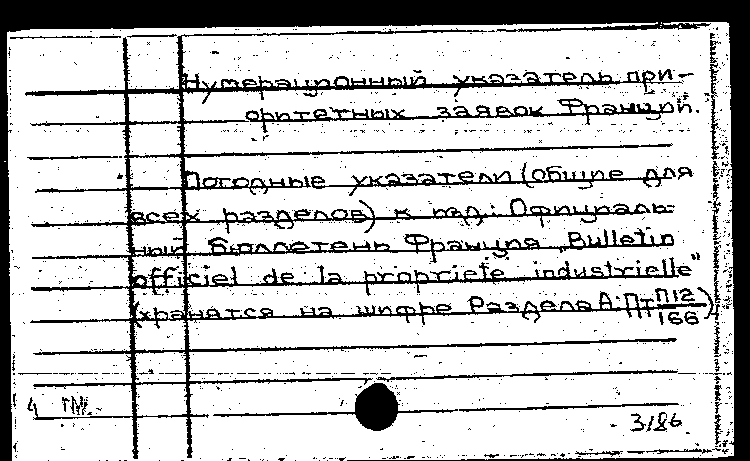 Нумерационный указатель при-
оритетных заявок Франции.
Погодные указатели (общие для
всех разделов) к изд.: Официаль-
ный бюллетень Франция „Bulletin
officiel de la propriete industrielle"
(хранятся на шифре Раздела А: Пт П12/166)
4
3/86